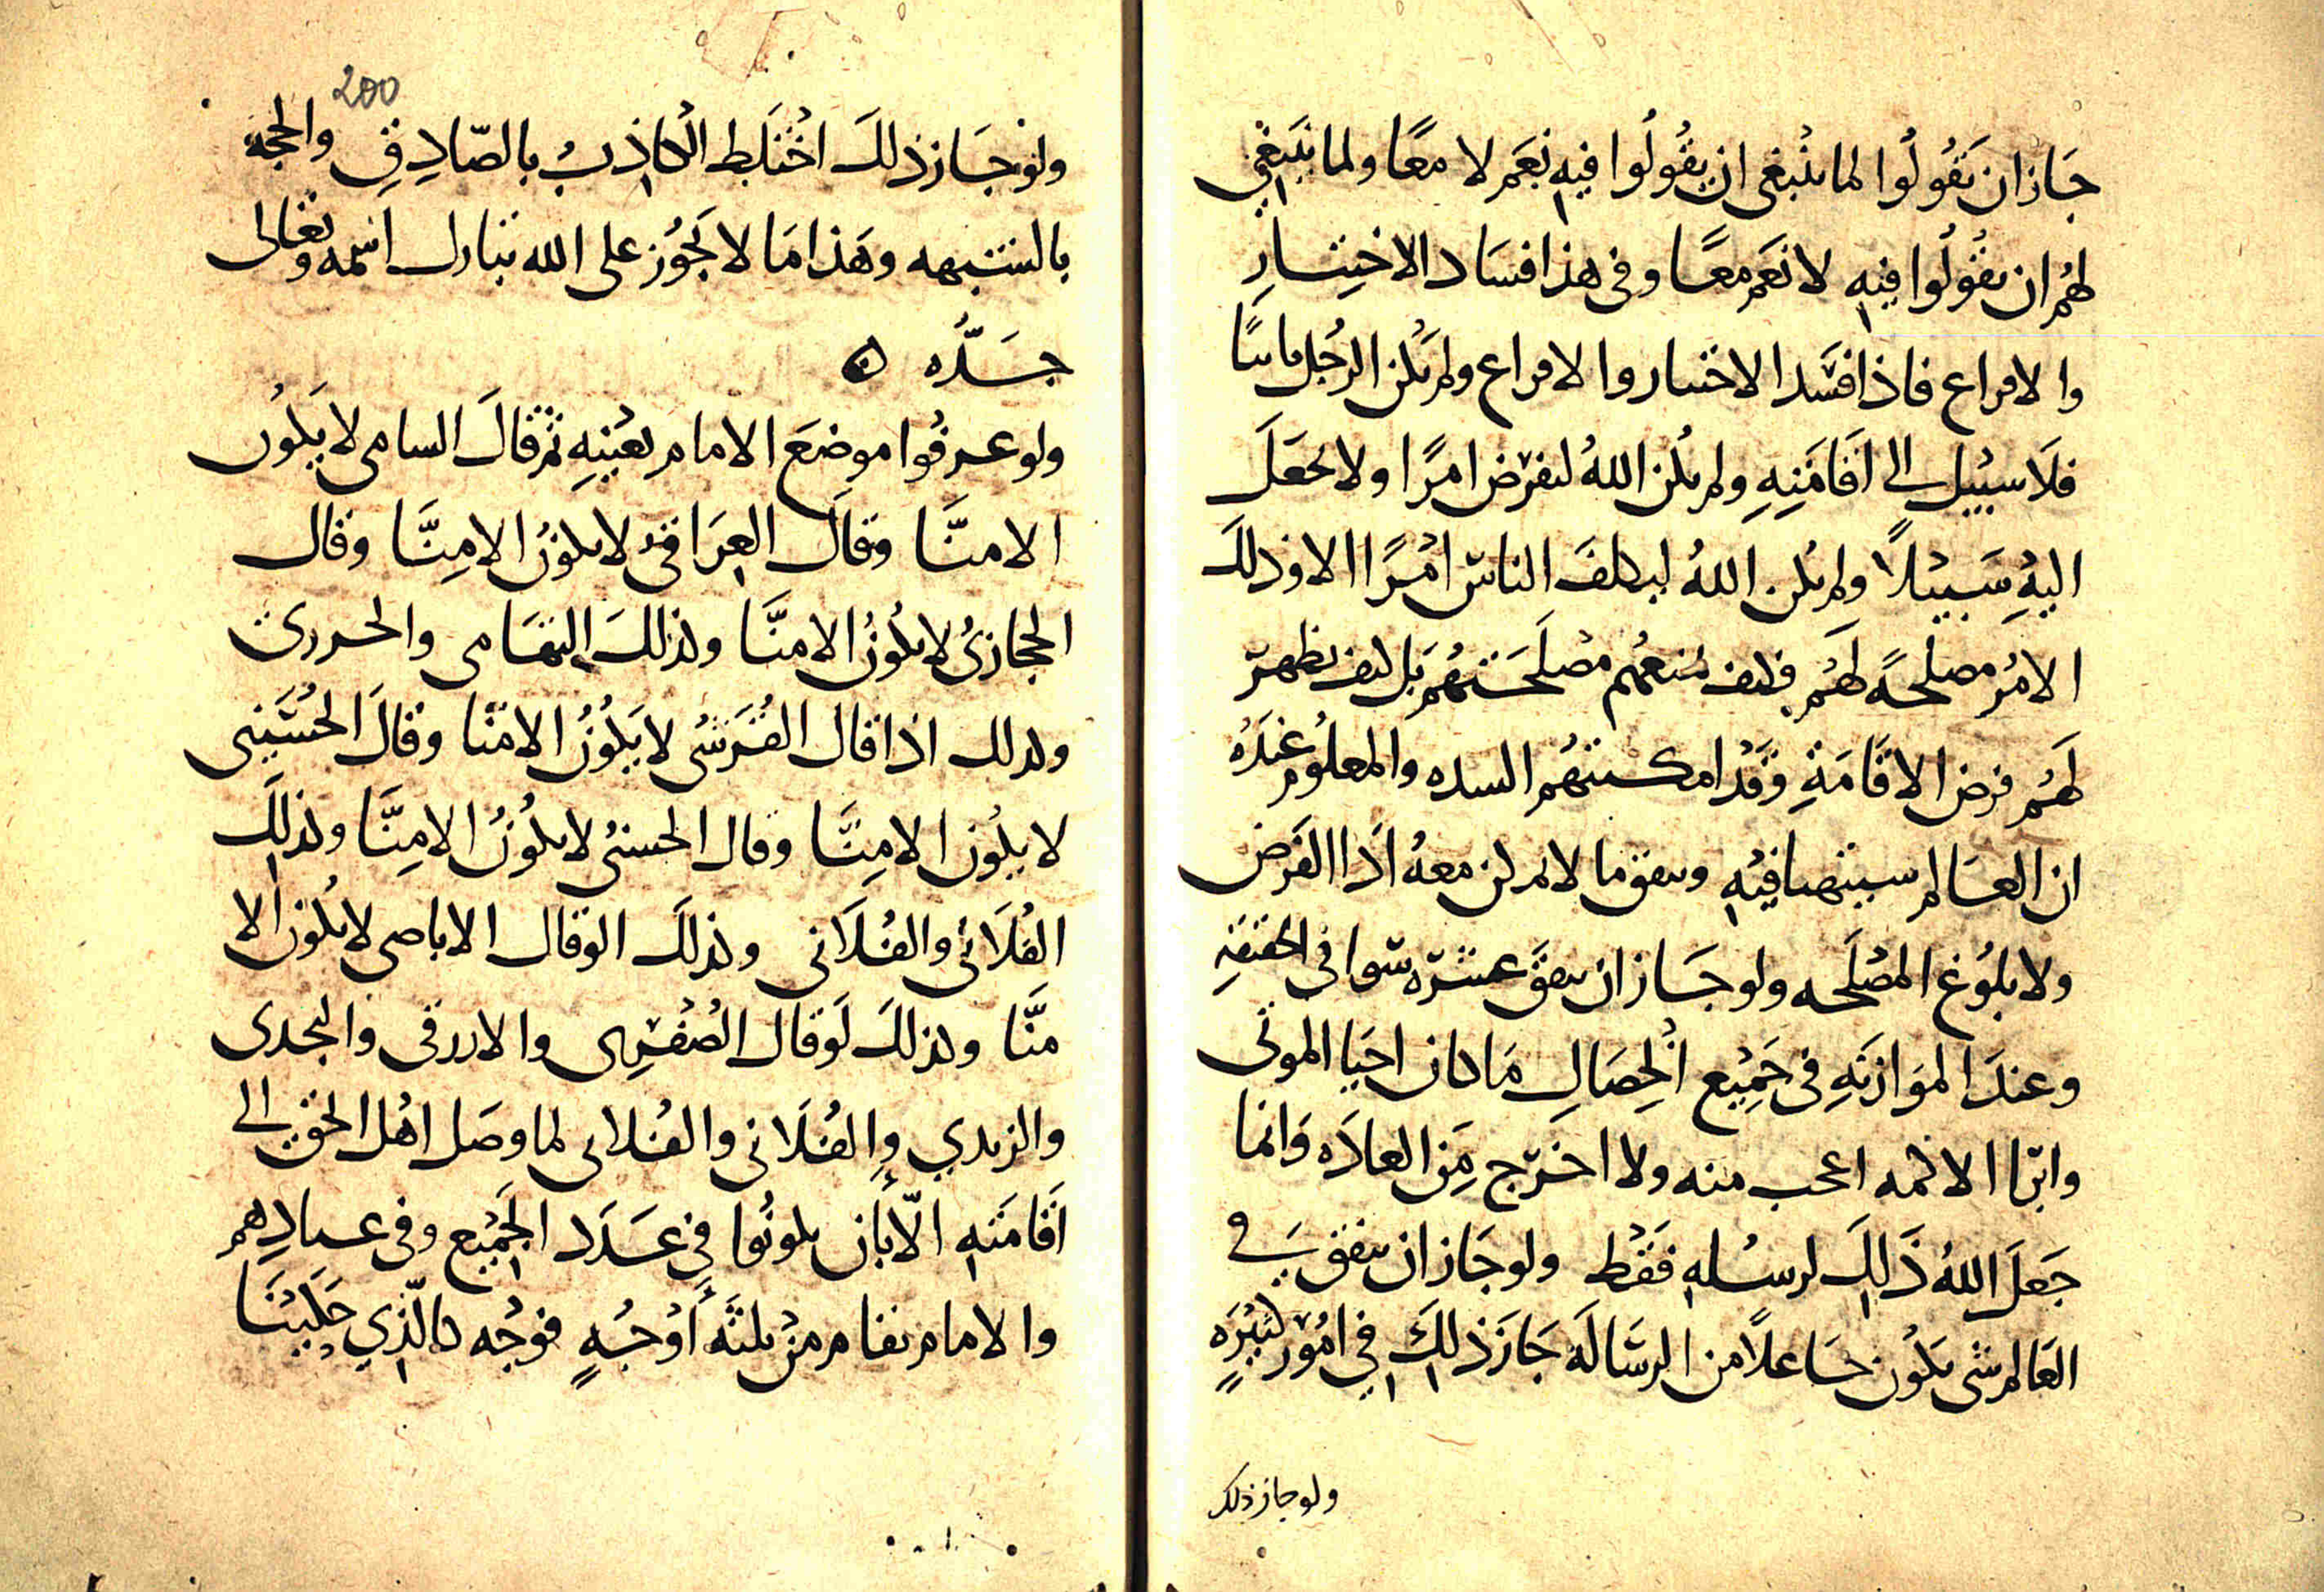 جَازان يَقُولُوا لما ينبغى ان يقُولُوا فيهِ نَعَم لا معًا ولما ينبَغِي
لهُم ان يقُولُوا فيهِ لا نَعَم معًا وفى هذا فسَاد الاختِيَارِ
والاقراع فاذا فسَد الاختيار والاقراع ولم يكن الرجُل باينًا
فلَا سبيل الى اقَامَتِهِ ولم يكُن اللهُ ليفرض امرًا ولا يجعَلَ
اليهِ سَبيلًا ولم يكُن اللهُ ليكلفَ الناسَ امْرًا الا وذلكَ
الامْرُ مصلحةً لَهُم فكيف يمنعهُم مصْلَحَتهُم بَل كيف يظهر
لَهُم فرض الاقَامَةِ وقَدْ امكنتهُم السده والمعلُوم عِندَهُ
ان العَالم سيتهيا فيهِ ويتفق ما لا يمكن معهُ اَدَا الفَرْض
ولا بلُوغ المصْلَحه ولو جَاز ان يتفقَ عشرَه سَوا فى الحقيقهِ
وعندَ المَوازنَهِ فى جَمِيْع الخِصَالِ مَا كان احيَا الموتى
وابرَا الاكمه اعجب منه ولا اخرَج مِن العادَه وَانما
جَعَلَ اللهُ ذَلِكَ لرسُلهِ فقَطْ ولو جَاز ان يتفق فى
العَالم شى يَكُون جَاعلًا من الرسَالَه جَازَ ذلِكَ فِي امُوْر كثِيْرَهٍ
ولو جاز ذلك
200
ولوْ جَاز ذلكَ اخْتَلَط الكاذِبُ بالصّادِقِ والحجه
بالشبهه وهَذا مَا لا يَجُوز على الله تبارك اسْمه وتعَالى
جَدُّه ۞
ولو عرفُوا موضعَ الامام بعْينِهِ ثم قالَ السامى لا يَكُون
الا منَّا وقالَ العِرَاقىُ لا يكونُ الا مِنَّا وقال
الحجازىُ لا يكُونُ الا منَّا وكذلكَ التهَامى والجزرى
وكذلك اذا قال القُرَشىُ لا يَكُوْنُ الا منّا وقالَ الحُسَيني
لا يكُون الا مِنَّا وقال الحسنىُ لا يكُوْنُ الا مِنَّا وكذلِكَ
الفُلَانىُ والفُلَانى وكذلكَ لو قال الاباضى لا يكُون الا
منَّا وكذلكَ لَو قال الصُفْرِى والازرقى والنجدى
والزيدي والفُلَانى والفُلانى لما وصَل اهْل الحق الى
اقَامَتهِ الّا بأن يكونُوا فِي عَدَد الجَمِيْع وفى عيادِهِم
والامام يقام مِنْ ثلثَه أوْجُهٍ فوَجْه كالّذِي حَكيْنَا